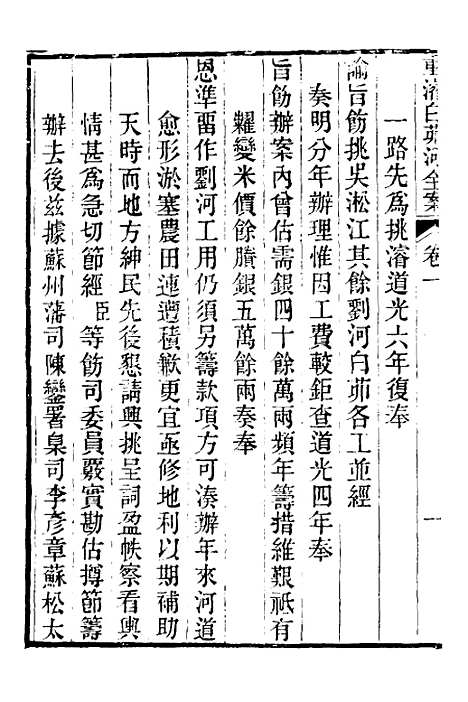 重濬白茆河全案 卷一 一
一路先為挑濬道光六年復奉
諭旨飭挑吳淞江其餘劉河白茆各工並經
奏明分年辦理惟因工費較鉅查道光四年奉
旨飭辦案內曾估需銀四十餘萬兩頻年籌措維艱祇有
糶變米價餘賸銀五萬餘兩奏奉
恩準留作劉河工用仍須另籌款項方可湊辦年來河道
愈形淤塞農田連遭積歉更宜亟修地利以期補助
天時而地方紳民先後懇請興挑呈詞盈帙察看輿
情甚為急切節經臣等飭司委員覈實勘估撙節籌
辦去後茲據蘇州藩司陳鑾署臬司李彥章蘇松太